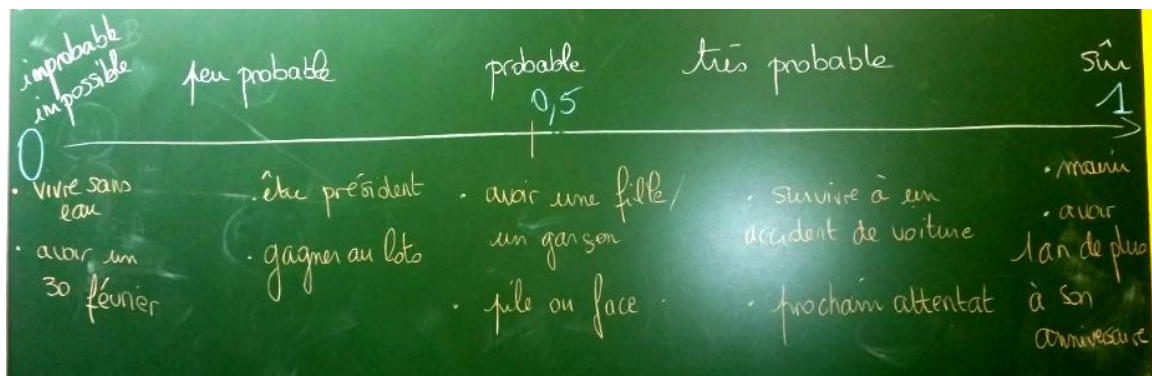 improbable
impossible
peu probable
probable
très probable
sûr
0
0,5
1
• vivre sans
eau
• avoir un
30 février
• être président
• gagner au loto
• avoir une fille/
un garçon
• pile ou face
• survivre à un
accident de voiture
• prochain attentat
• mourir
• avoir
1 an de plus
à son
anniversaire